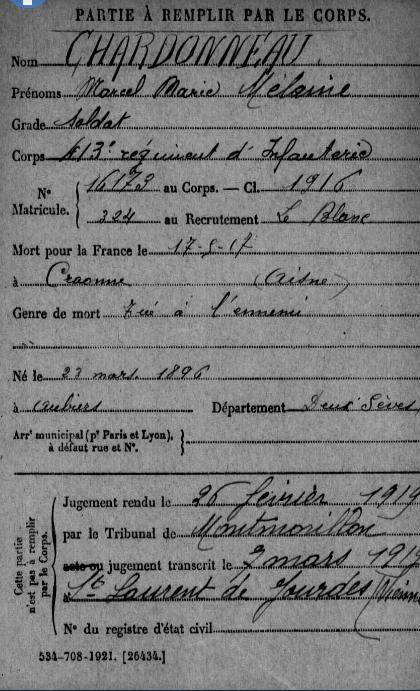 PARTIE À REMPLIR PAR LE CORPS.
Nom CHARDONNEAU
Prénoms Marcel Marie Mélanie
Grade Soldat
Corps 113e régiment d'Infanterie
N° Matricule. { 16173 au Corps. — Cl. 1916
324 au Recrutement Le Blanc
Mort pour la France le 17-5-17
à Craonne (Aisne)
Genre de mort Tué à l'ennemi
Né le 23 mars 1896
à Aubiers Département Deux Sèvres
Arrt municipal (pr Paris et Lyon), à défaut rue et N°. }
Cette partie n'est pas à remplir par le Corps.
Jugement rendu le 26 février 1919
par le Tribunal de Montmorillon
acte ou jugement transcrit le 2 mars 1919
à St Laurent de Jourdes (Vienne
N° du registre d'état civil
534-708-1921. [26434.]